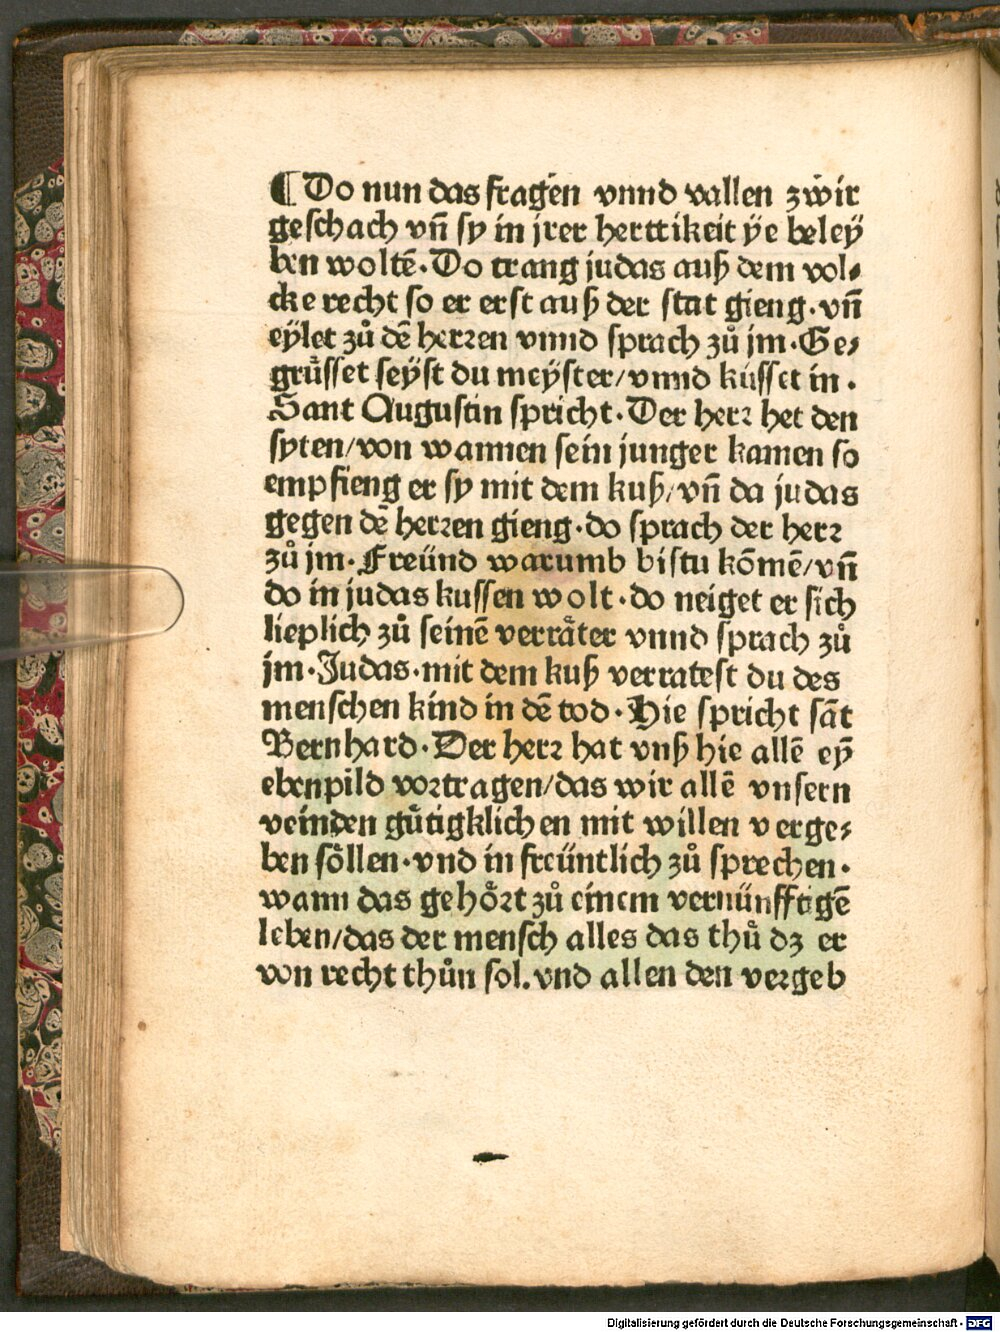 ¶ Do nun das fragen vnnd vallen zwir
geschach vñ sy in jrer herttikeit ÿe beleÿ
ben woltē. Do trang judas auß dem vol⸗
cke recht so er erst auß der stat gieng. vñ
eÿlet zů dē herꝛen vnnd sprach zů jm. Ge⸗
grüsset seÿst du meÿster/vnnd küsset in.
Sant Augustin spricht. Der herꝛ het den
syten/von wannen sein junger kamen so
empfieng er sy mit dem kuß/vñ da judas
gegen dē herꝛen gieng. do sprach der herꝛ
zů jm. Freünd warumb bistu kōmē/vñ
do in judas kussen wolt. do neiget er sich
lieplich zů seinē verraͤter vnnd sprach zů
jm. Judas. mit dem kuß verratest du des
menschen kind in dē tod. Hie spricht sāt
Bernhard. Der herꝛ hat vnß hie allē eyn̄
ebenpild voꝛtragen/das wir allē vnsern
veinden guͤtigklichen mit willen verge⸗
ben soͤllen. vnd in freüntlich zů sprechen.
wann das gehoͤꝛt zů einem vernünfftigē
leben/das der mensch alles das thů dꝫ er
von recht thůn sol. vnd allen den veꝛgeb
Digitalisierung gefördert durch die Deutsche Forschungsgemeinschaft - DFG